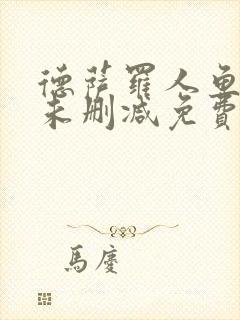 德萨羅人鱼
未删减免費
馬慶